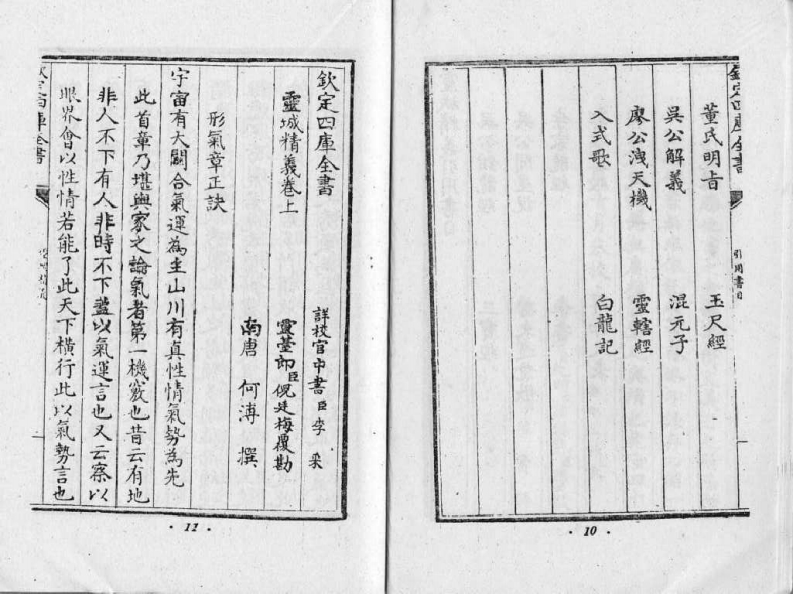 欽定四庫全書
引用書目
董氏明旨 玉尺經
吳公解義 混元子
廖公洩天機 靈轄經
入式歌 白龍記
· 10 ·
欽定四庫全書
靈城精義卷上
詳校官中書臣李采
靈臺郎臣倪廷梅覆勘
南唐 何溥 撰
形氣章正訣
宇宙有大關合氣運為主山川有真性情氣勢為先
此首章乃堪輿家之論氣者第一機竅也昔云有地
非人不下有人非時不下蓋以氣運言也又云察以
眼界會以性情若能了此天下橫行此以氣勢言也
欽定四庫全書
· 11 ·